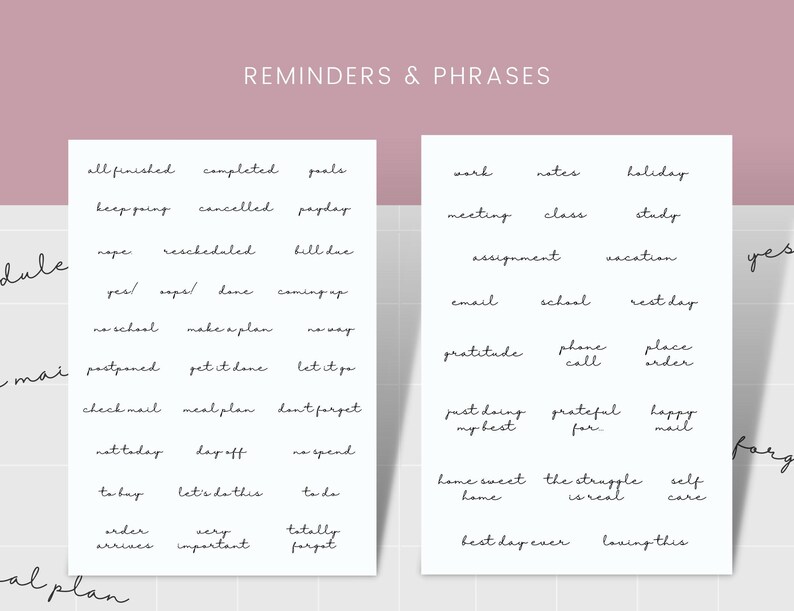 REMINDERS & PHRASES
all finished completed goals
keep going cancelled payday
nope rescheduled bill due
yes! oops! done coming up
no school make a plan no way
postponed get it done let it go
check mail meal plan don't forget
not today day off no spend
to buy let's do this to do
order very totally
arrives important forgot
work notes holiday
meeting class study
assignment vacation
email school rest day
gratitude phone place
call order
just doing grateful happy
my best for... mail
home sweet the struggle self
home is real care
best day ever loving this
dule
mai
al plan
yes
forg